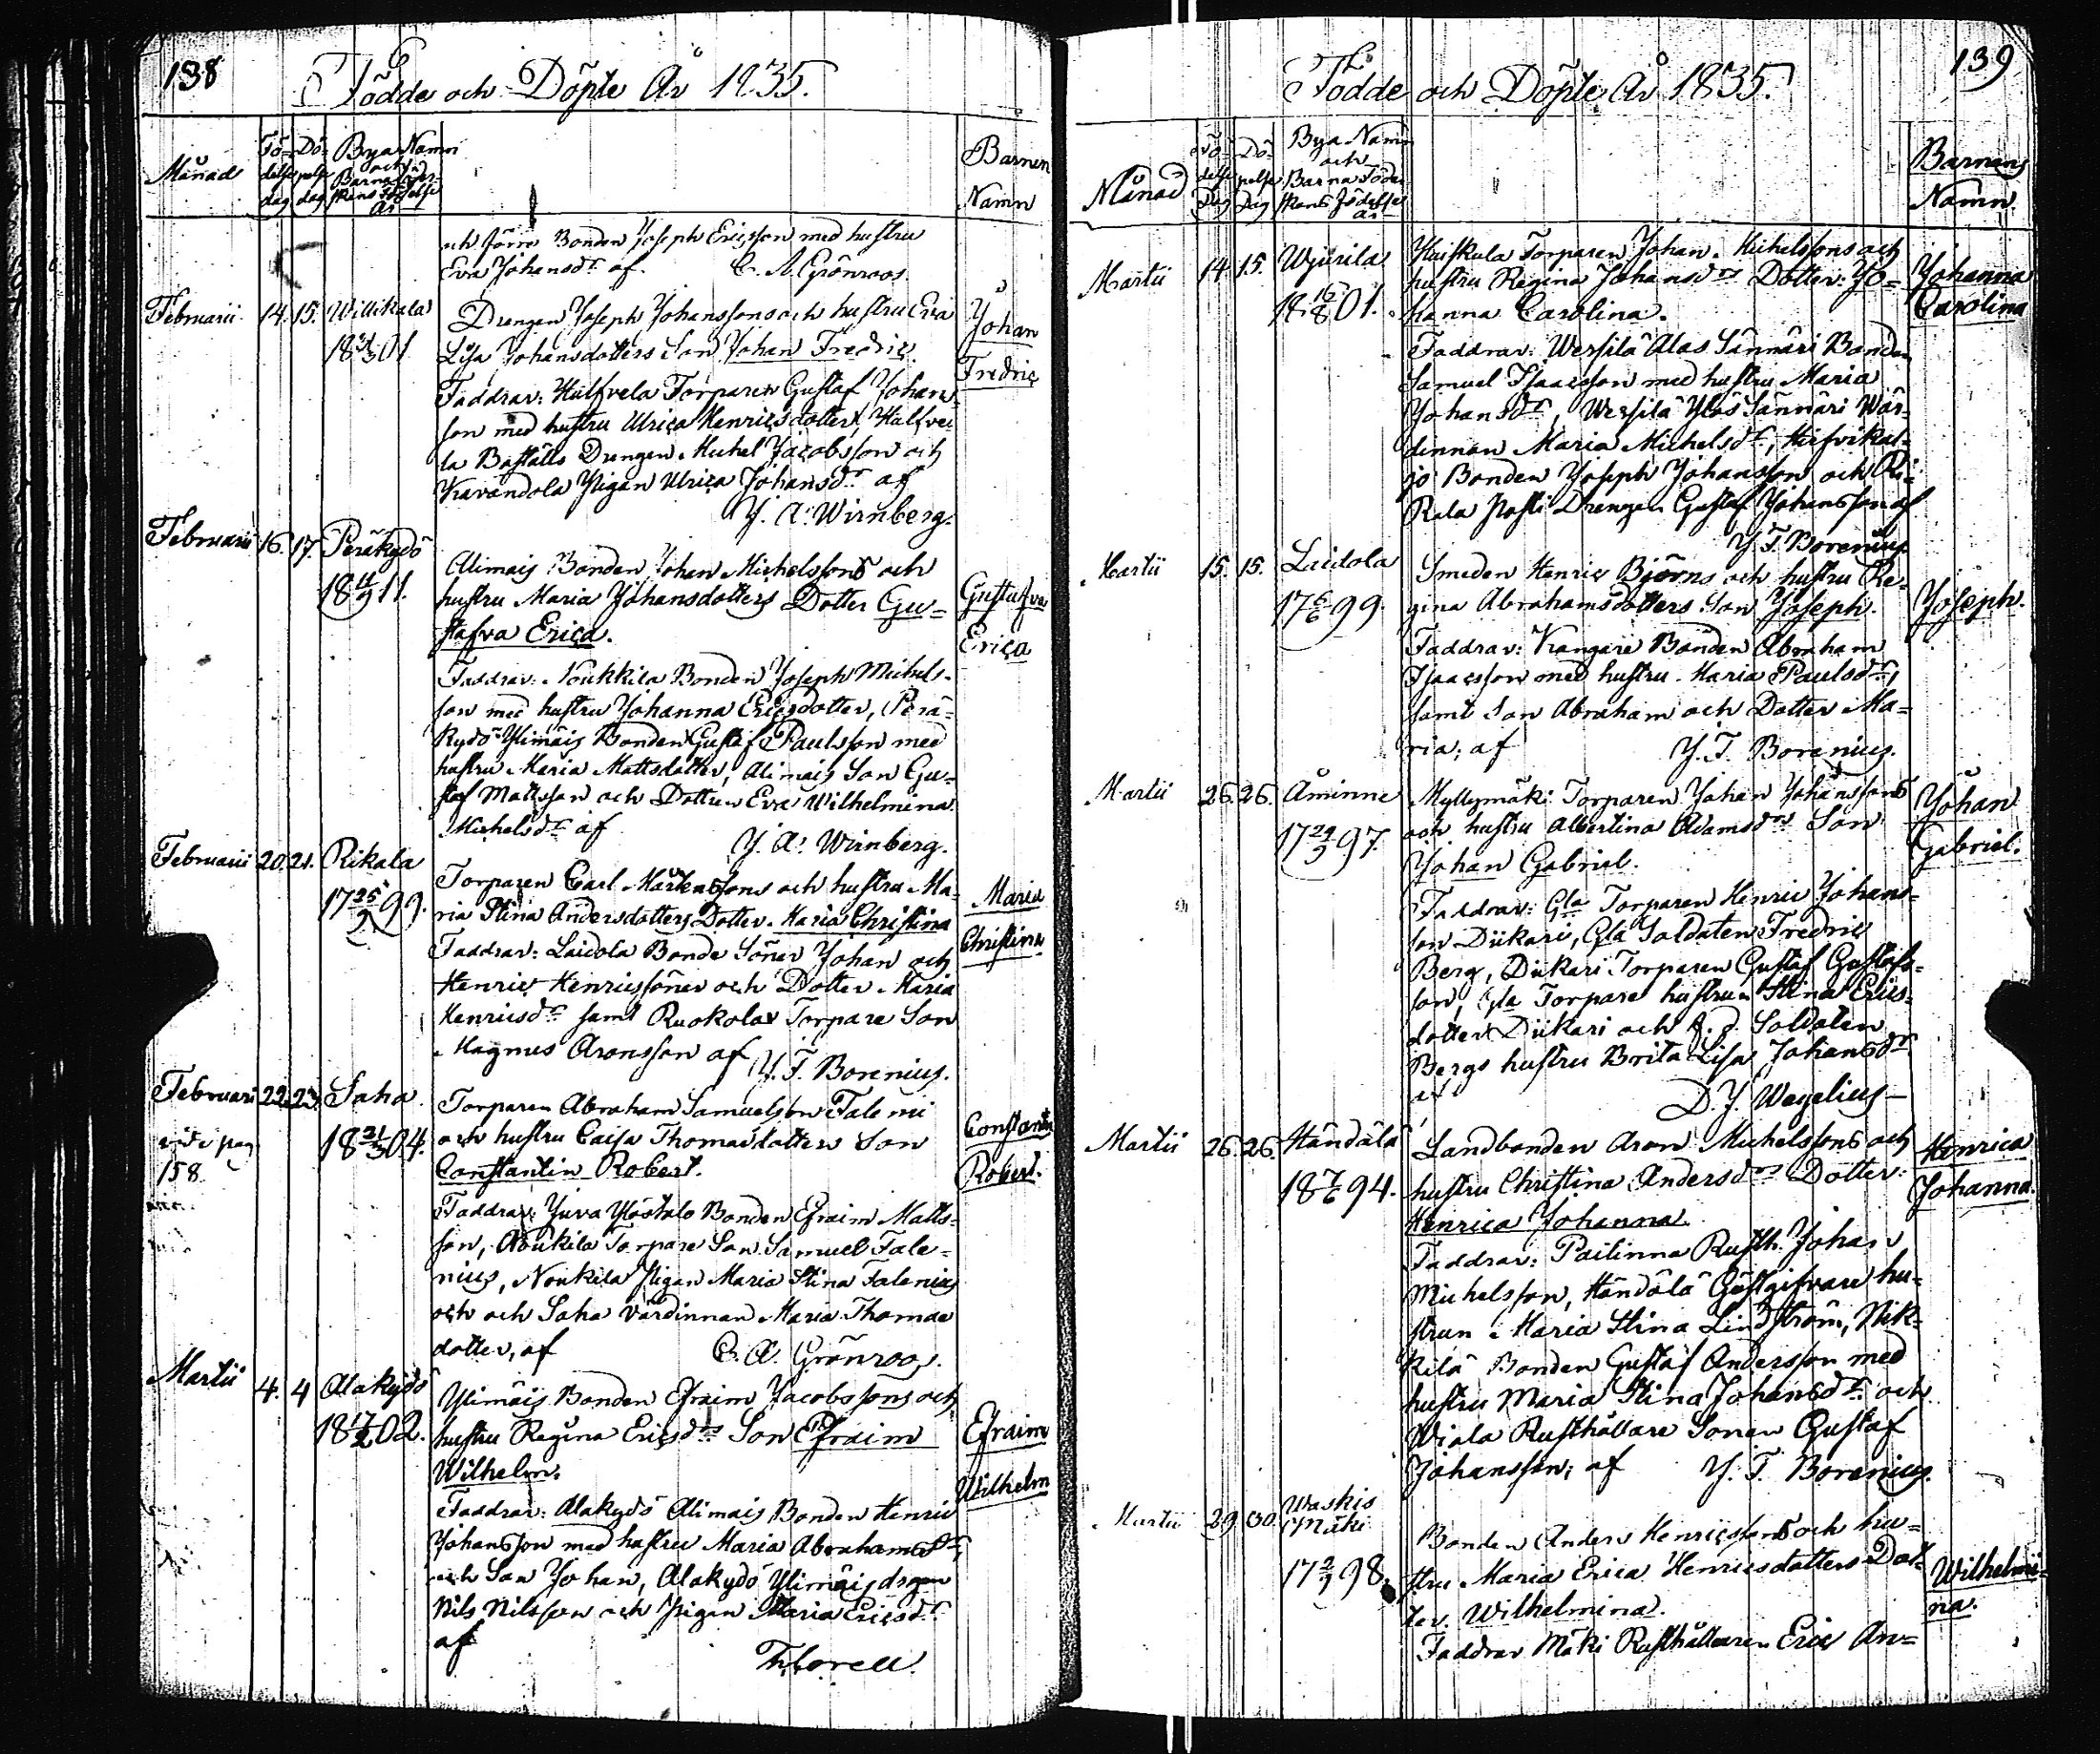 138
Födde och Döpte År 1835.
Månads
Fö- delse dag
Dö- pelse dag
Bya Namn och Barnaföderskans födelse År
Barnen Namn
och förre Bonden Joseph Ericsson med hustru
Eva Johansdr af C. A. Grönroos.
Februarii 14. 15. Willikala
18 01
Drengen Joseph Johanssons och hustru Eva
Lisa Johansdotters Son Johan Fredric.
Johan
Fredric
Faddrar: Halfvela Torparen Gustaf Johans-
son med hustru Ulrica Henricsdotter, Halfve-
la Boställs Drengen Michel Jacobsson och
Kavandola Pigan Ulrica Johansdr af
J. A. Wirnberg.
Februarii 16. 17. Peräkydö
18 11.
Alimais Bonden Johan Michelssons och
hustru Maria Johansdotters Dotter Gu-
stafva Erica.
Gustafva
Erica
Faddrar: Noukkila Bonden Joseph Michels-
son med hustru Johanna Ericsdotter, Perä-
kydö Ylimäis Bonden Gustaf Paulsson med
hustru Maria Mattsdotter, Alimais Son Gu-
staf Mattsson och Dottren Eva Wilhelmina
Michelsdr af J. A. Wirnberg.
Februarii 20. 21. Rikala
17 25/2 99.
Torparen Carl Mårtenssons och hustru Ma-
ria Stina Andersdotters Dotter Maria Christina
Maria
Christina
Faddrar: Laidola Bonde Söner Johan och
Henric Henricssöner och Dotter Maria
Henricsdr samt Ruokola Torpare Son
Magnus Aronsson af J. F. Borenius.
Februari 22. 23. Saha
vide pag
158
18 31/3 04.
Torparen Abraham Samuelsson Taleni
och hustru Caisa Thomasdotters Son
Constantin Robert.
Constantin
Robert.
Faddrar: Juva Ylöstalo Bonden Efraim Matts-
son, Noukila Torpare Son Samuel Tale-
nius, Noukila Pigan Maria Stina Talenius
och och Saha Värdinnan Maria Thomae
dotter, af C. A. Grönroos.
Martii 4. 4 Alakydö
18 17/2 02.
Ylimäis Bonden Efraim Jacobssons och
hustru Regina Ericsdrs Son Efraim
Wilhelm.
Efraim
Wilhelm
Faddrar: Alakydö Alimais Bonden Henric
Johansson med hustru Maria Abrahamsdr,
och Son Johan, Alakydö Ylimäis drgen
Nils Nilsson och Pigan Maria Ericsdr
af
Thorell.
139
Födde och Döpte År 1835.
Månad
Fö- delse Dag
Dö- pelse Dag
Bya Namn och Barnaföderskans födelse år
Barnens Namn.
Martii 14. 15. Wyurila
18 16/8 01.
Kuiskula Torparen Johan Michelssons och
hustru Regina Johansdrs Dotter: Jo-
hanna Carolina.
Johanna
Carolina
Faddrar: Wersilä Alas Sännäri Bonden
Samuel Isaacsson med hustru Maria
Johansdr, Wersilä Ylös Sännäri Wär-
dinnan Maria Michelsdr, Hirfvikal-
jo Bonden Joseph Johansson och Ri-
kala Posti Drengen Gustaf Johansson af
J. F. Borenius
Martii 15. 15. Laidola
17 6/6 99.
Smeden Henric Björns och hustru Re-
gina Abrahamsdotters Son Joseph.
Joseph.
Faddrar: Kangare Bonden Abraham
Isaacsson med hustru Maria Paulsdr,
samt Son Abraham och Dotter Ma-
ria; af J. F. Borenius.
Martii 26. 26. Åminne
17 24/3 97.
Myllymäki Torparen Johan Johanssons
och hustru Albertina Adamsdrs Son
Johan Gabriel.
Johan
Gabriel.
Faddrar: Gla Torparen Henric Johans-
son Diikari, Gla Soldaten Fredric
Berg, Diikari Torparen Gustaf Gustafs-
son, Gla Torpare hustrun Stina Erics-
dotter Diikari och f. d. Soldaten
Bergs hustru Brita Lisa Johansdr
af D. J. Wegelius
Martii 26. 26. Händälä
18 7/6 94.
Landbonden Aron Michelssons och
hustru Christina Andersdrs Dotter:
Henrica Johanna.
Henrica
Johanna.
Faddrar: Pailinna Rusth. Johan
Michelsson, Händälä Gästgifvare hu-
strun Maria Stina Lindström, Nik-
kilä Bonden Gustaf Andersson med
hustru Maria Stina Johansdr och
Wiala Rusthållare Sonen Gustaf
Johansson; af J. F. Borenius.
Martii 29 30. Waskis
Mäki
17 98.
Bonden Anders Henricssons och hu-
stru Maria Erica Henricsdotters Dot-
ter. Wilhelmina.
Wilhelmi-
na.
Faddrar Mäki Rusthållaren Eric An=